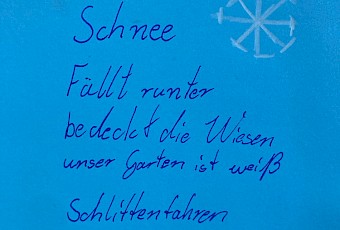 Schnee
Fällt runter
bedeckt die Wiesen
unser Garten ist weiß
Schlittenfahren